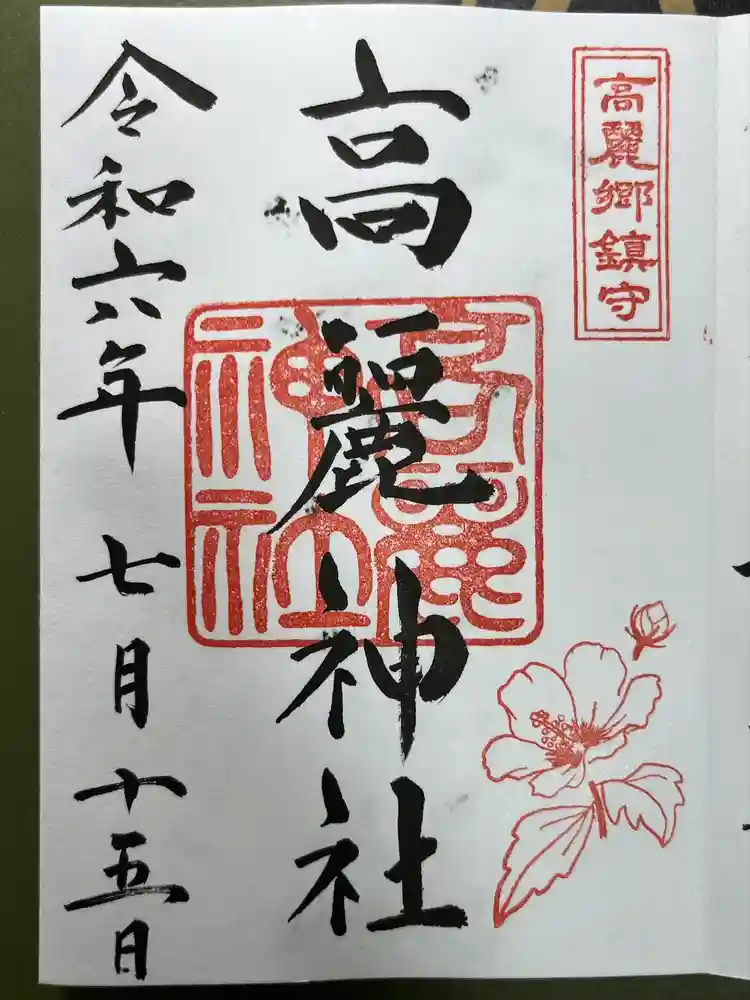 高麗郷鎮守
高麗神社
高麗神社
令和六年七月十五日